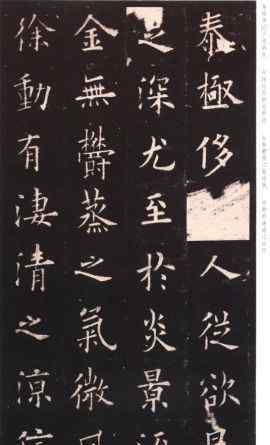 泰極侈人從欲
之深尤至於炎景
金無欝蒸之氣微
徐動有淒清之涼